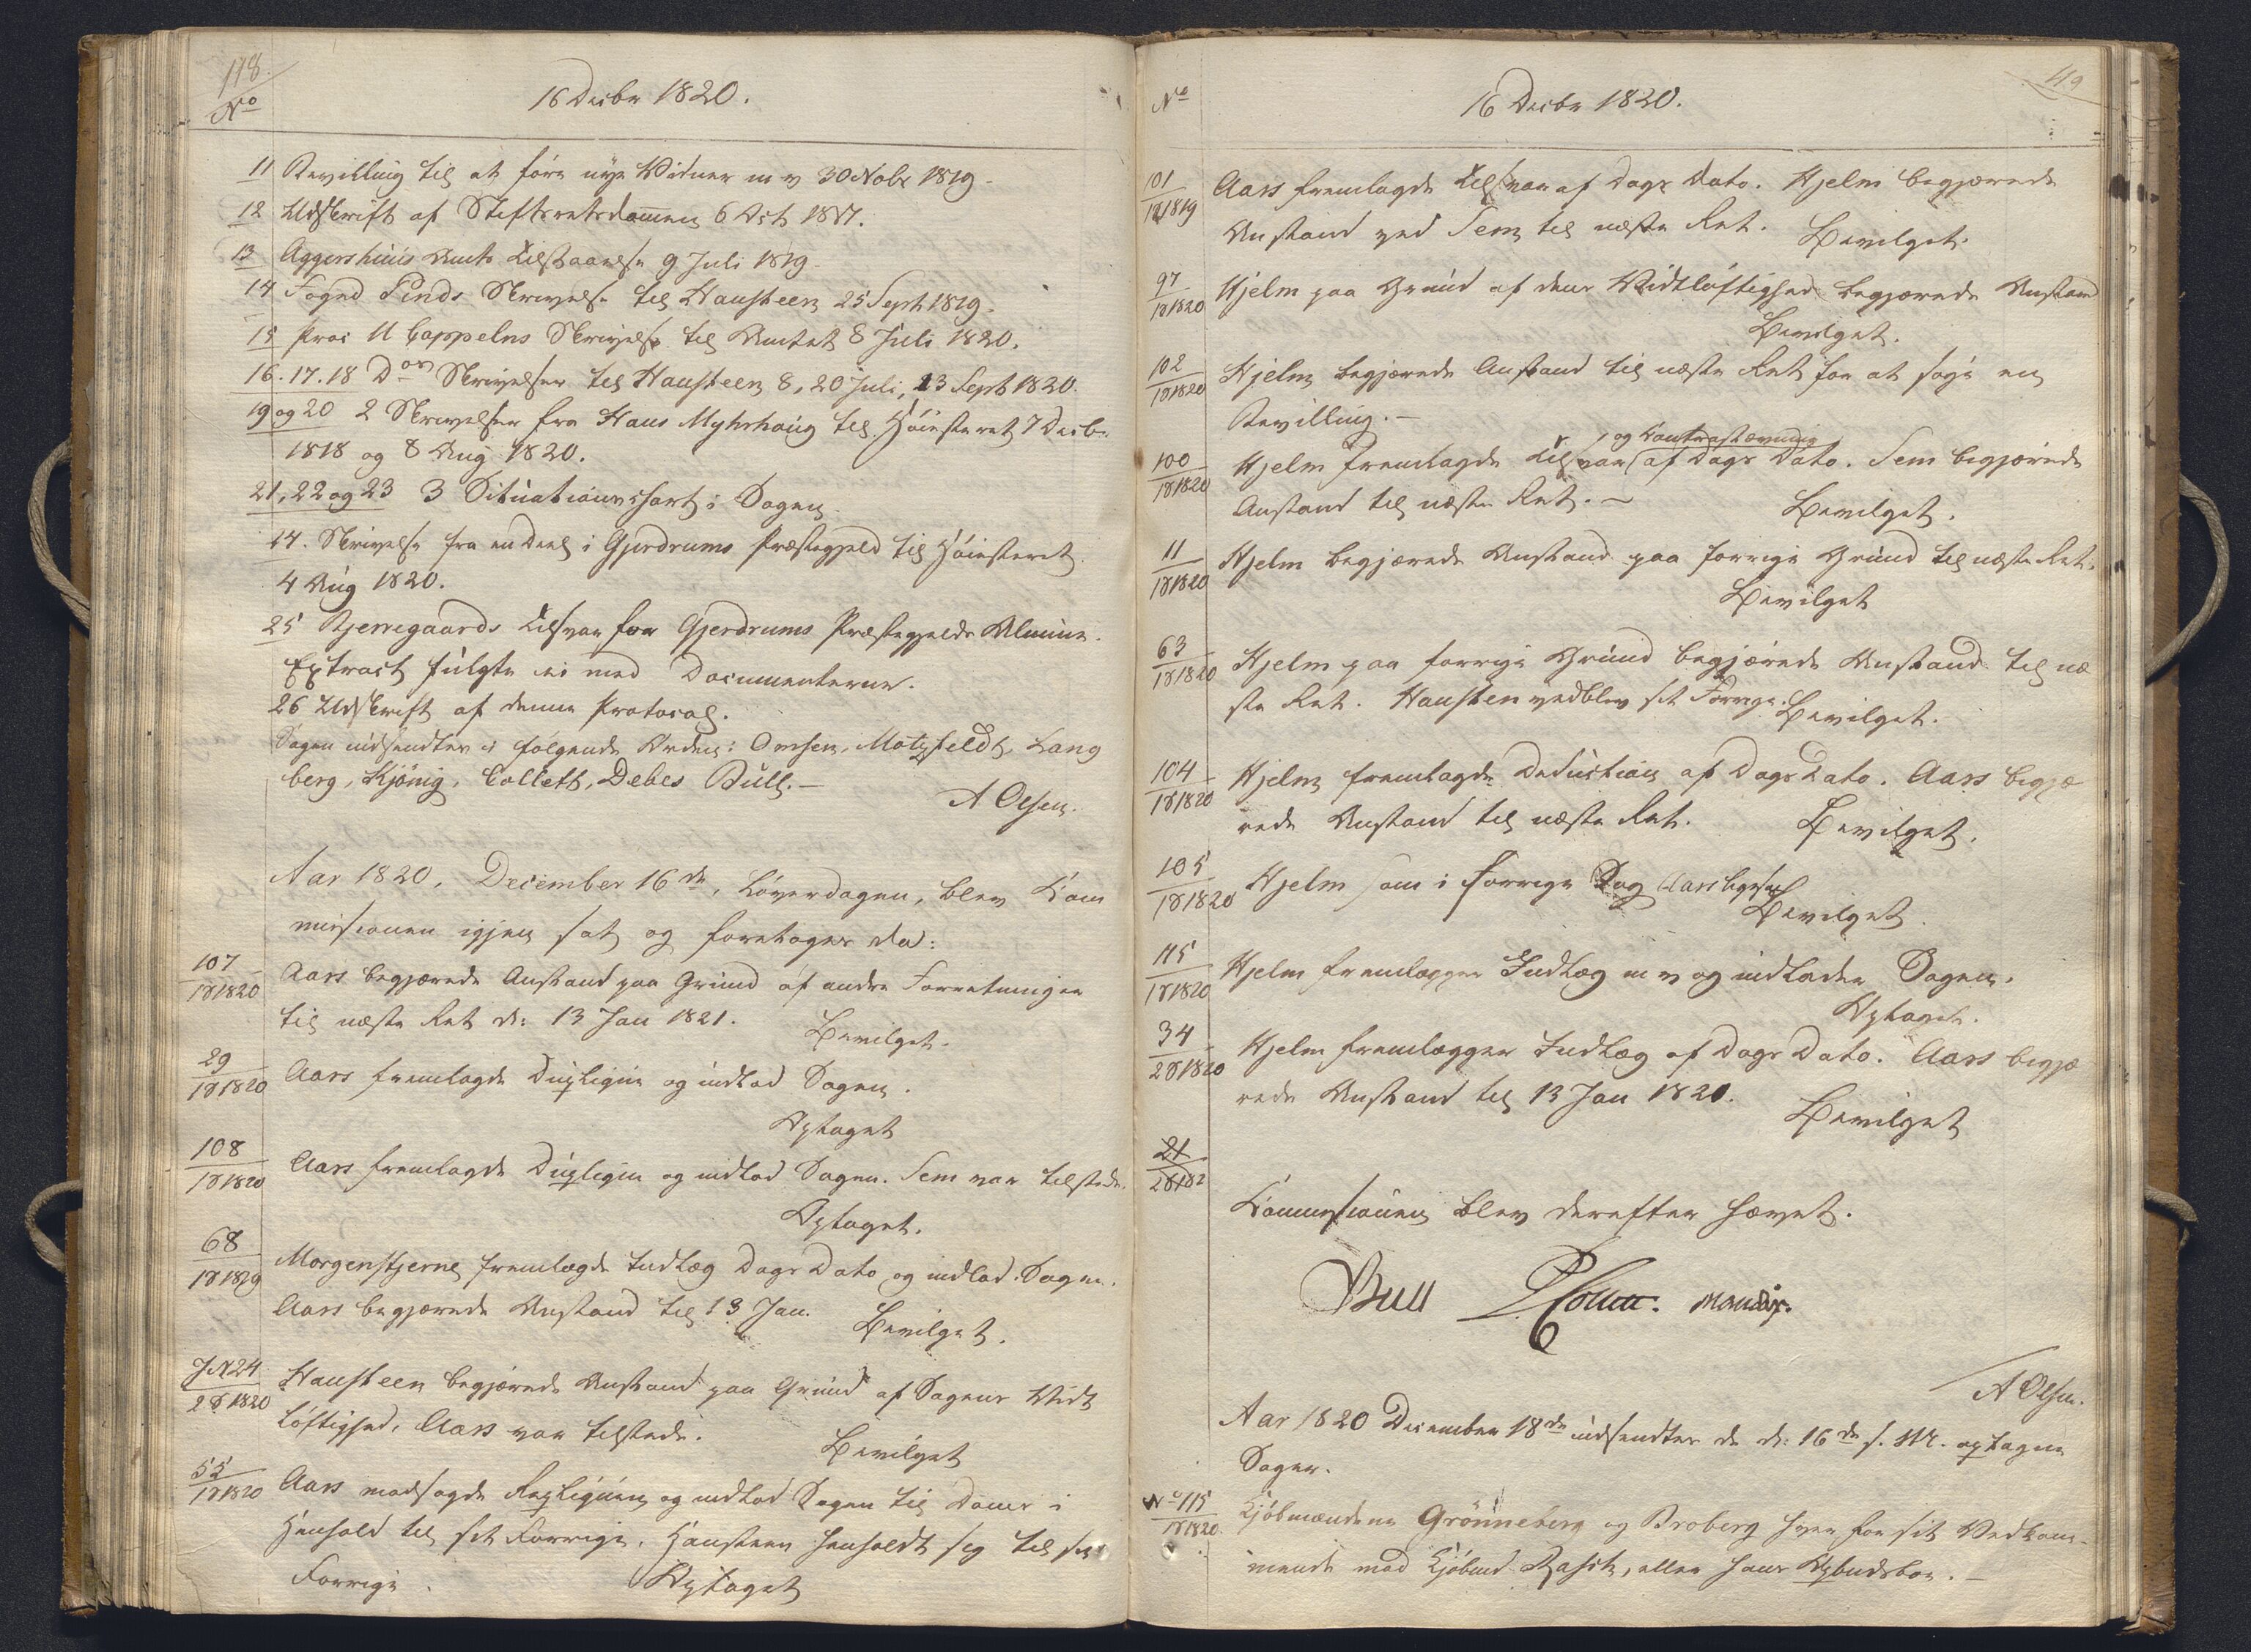 118.
No
16 Decbr 1820.
11 Bevilling til at føre nye Vidner m v 30 Novbr 1819.
12 Udskrift af Stiftsretsdommen 6 Oct 1817.
13 Aggershuus Amts Tilstaaelse 9 Juli 1819.
14 Foged Finds Skrivelse til Hansteen 25 Sept 1819.
15 Proc U Cappelns Skrivelse til Amtet 8 Juli 1820.
16. 17. 18 Dos Skrivelser til Hansteen 8, 20 Juli, 23 Sept 1820.
19 og 20 2 Skrivelser fra Hans Myhrhaug til Høiesteret 7 Decbr
1818 og 8 Aug 1820.
21, 22 og 23 3 Situationscharter i Sagen.
14. Skrivelse fra en Deel i Gjerdrums Præstegjeld til Høiesteret
4 Aug 1820.
25 Bjerregaards Tilsvar for Gjerdrums Præstegjelds Almue.
Extract fulgte ei med Documenterne.
26 Udskrift af denne Protocol.
Sagen udsendtes i følgende Orden: Omsen, Motzfeldt, Lang
berg, Kjønig, Collett, Debes Bull.—
A Olsen.
Aar 1820, December 16de, Løverdagen, blev Kom
missionen igjen sat og foretoges da:
107
18 1820
Aars begjærede Anstand paa Grund af andre Forretninger
til næste Ret d: 13 Jan 1821. Bevilget.
29
18 1820
Aars fremlagde Dupliquen og indlod Sagen.
Optaget
108
18 1820
Aars fremlagde Dupliquen og indlod Sagen. Sem var tilstede.
Optaget.
68
18 1819
Morgenstjerne fremlagde Indlæg Dags Dato og indlod Sagen.
Aars begjærede Anstand til 13 Jan. Bevilget.
J N 24
28 1820
Hansteen begjærede Anstand paa Grund af Sagens Vidt
løftighed. Aars var tilstede.
Bevilget
55
18 1820
Aars modsagde Repliquen og indlod Sagen til Doms i
Henhold til sit Forrige. Hansteen henholdt sig til sit
Forrige. Optaget
No
16 Decbr 1820.
119
101
18 1819
Aars fremlagde Tilsvar af Dags Dato. Hjelm begjærede
Anstand ved Sem til næste Ret. Bevilget.
97
18 1820
Hjelm paa Grund af dens Vidtløftighed begjærede Anstand
Bevilget.
102
18 1820
Hjelm begjærede Anstand til næste Ret for at søge en
Bevilling.—
100
18 1820
og Contrastævning
Hjelm fremlagde Tilsvar af Dags Dato. Sem begjærede
Anstand til næste Ret.— Bevilget.
11
18 1820
Hjelm begjærede Anstand paa forrige Grund til næste Ret.
Bevilget
63
18 1820
Hjelm paa forrige Grund begjærede Anstand til næ
ste Ret. Hansten vedblev sit Forrige. Bevilget.
104
18 1820
Hjelm fremlagde Deduction af Dags Dato. Aars begjæ
rede Anstand til næste Ret. Bevilget.
105
18 1820
Hjelm som i forrige Sag Aars ligesaa
Bevilget.
115
18 1820
Hjelm fremlægger Indlæg m v og indlader Sagen.
Optaget.
34
28 1820
Hjelm fremlægger Indlæg af Dags Dato. Aars begjæ
rede Anstand til 13 Jan 1821.
Bevilget
21
28 182
Kommissionen blev derefter hævet.
Bull Collett. Mandix.
A Olsen.
Aar 1820 December 18de udsendtes de d: 16de s. M. optagne
Sager.
No 115
18 1820.
Kjøbmændene Grönneberg og Broberg hver for sit Vedkom-
mende mod Kjøbmd Rasch, eller hans Opbudsboe.—